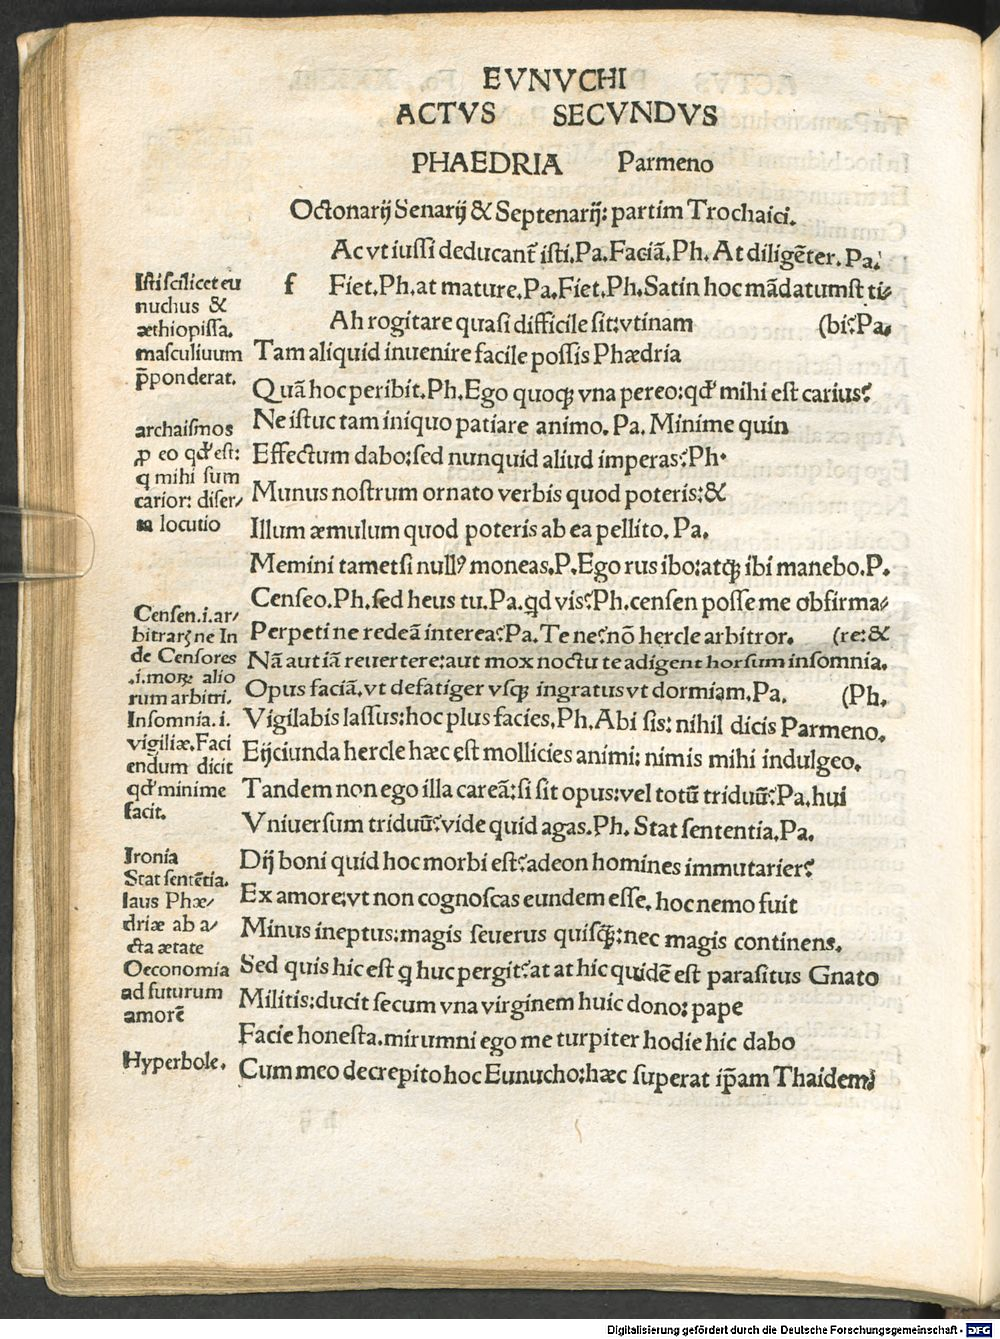 EVNVCHI
ACTVS SECVNDVS
PHAEDRIA Parmeno
Octonarij Senarij & Septenarij: partim Trochaici.
Ac vt iussi deducant̃ isti. Pa. Faciã. Ph. At diligẽter. Pa.
f Fiet. Ph. at mature. Pa. Fiet. Ph. Satin hoc mãdatumst ti-
Ah rogitare quasi difficile sit: vtinam (bi? Pa.
Tam aliquid inuenire facile possis Phædria
Quã hoc peribit. Ph. Ego quoqꝫ vna pereo: qđ mihi est carius?
Ne istuc tam iniquo patiare animo. Pa. Minime quin
Effectum dabo: sed nunquid aliud imperas? Ph.
Munus nostrum ornato verbis quod poteris: &
Illum æmulum quod poteris ab ea pellito. Pa.
Memini tametsi nullꝰ moneas. P. Ego rus ibo: atqꝫ ibi manebo. P.
Censeo. Ph. sed heus tu. Pa. qd vis? Ph. censen posse me obfirma-
Perpeti ne redeã interea? Pa. Te ne? nõ hercle arbitror. (re: &
Nã aut iã reuertere: aut mox noctu te adigent horsum insomnia.
Opus faciã. vt defatiger vsqꝫ ingratus vt dormiam. Pa. (Ph.
Vigilabis lassus: hoc plus facies. Ph. Abi sis: nihil dicis Parmeno.
Eijciunda hercle hæc est mollicies animi: nimis mihi indulgeo.
Tandem non ego illa careã: si sit opus: vel totũ triduũ? Pa. hui
Vniuersum triduũ? vide quid agas. Ph. Stat sententia. Pa.
Dij boni quid hoc morbi est? adeon homines immutarier?
Ex amore: vt non cognoscas eundem esse. hoc nemo fuit
Minus ineptus: magis seuerus quisqꝫ: nec magis continens.
Sed quis hic est q huc pergit? at at hic quidẽ est parasitus Gnato
Militis: ducit secum vna virginem huic dono: pape
Facie honesta. mirumni ego me turpiter hodie hic dabo
Cum meo decrepito hoc Eunucho: hæc superat ip̃am Thaidem
Isti scilicet eu
nuchus &
æthiopissa.
masculiuum
p̃ponderat.
archaismos
ꝓ eo qđ est:
q mihi sum
carior: diser-
ta locutio
Censen. i. ar-
bitrarꝭ ne In
de Censores
.i. moꝝ alio
rum arbitri.
Insomnia. i.
vigiliæ. Faci
endum dicit
qđ minime
facit.
Ironia
Stat sentẽtia.
laus Phæ-
driæ ab a-
cta ætate
Oeconomia
ad futurum
amorẽ
Hyperbole.
Digitalisierung gefördert durch die Deutsche Forschungsgemeinschaft - DFG